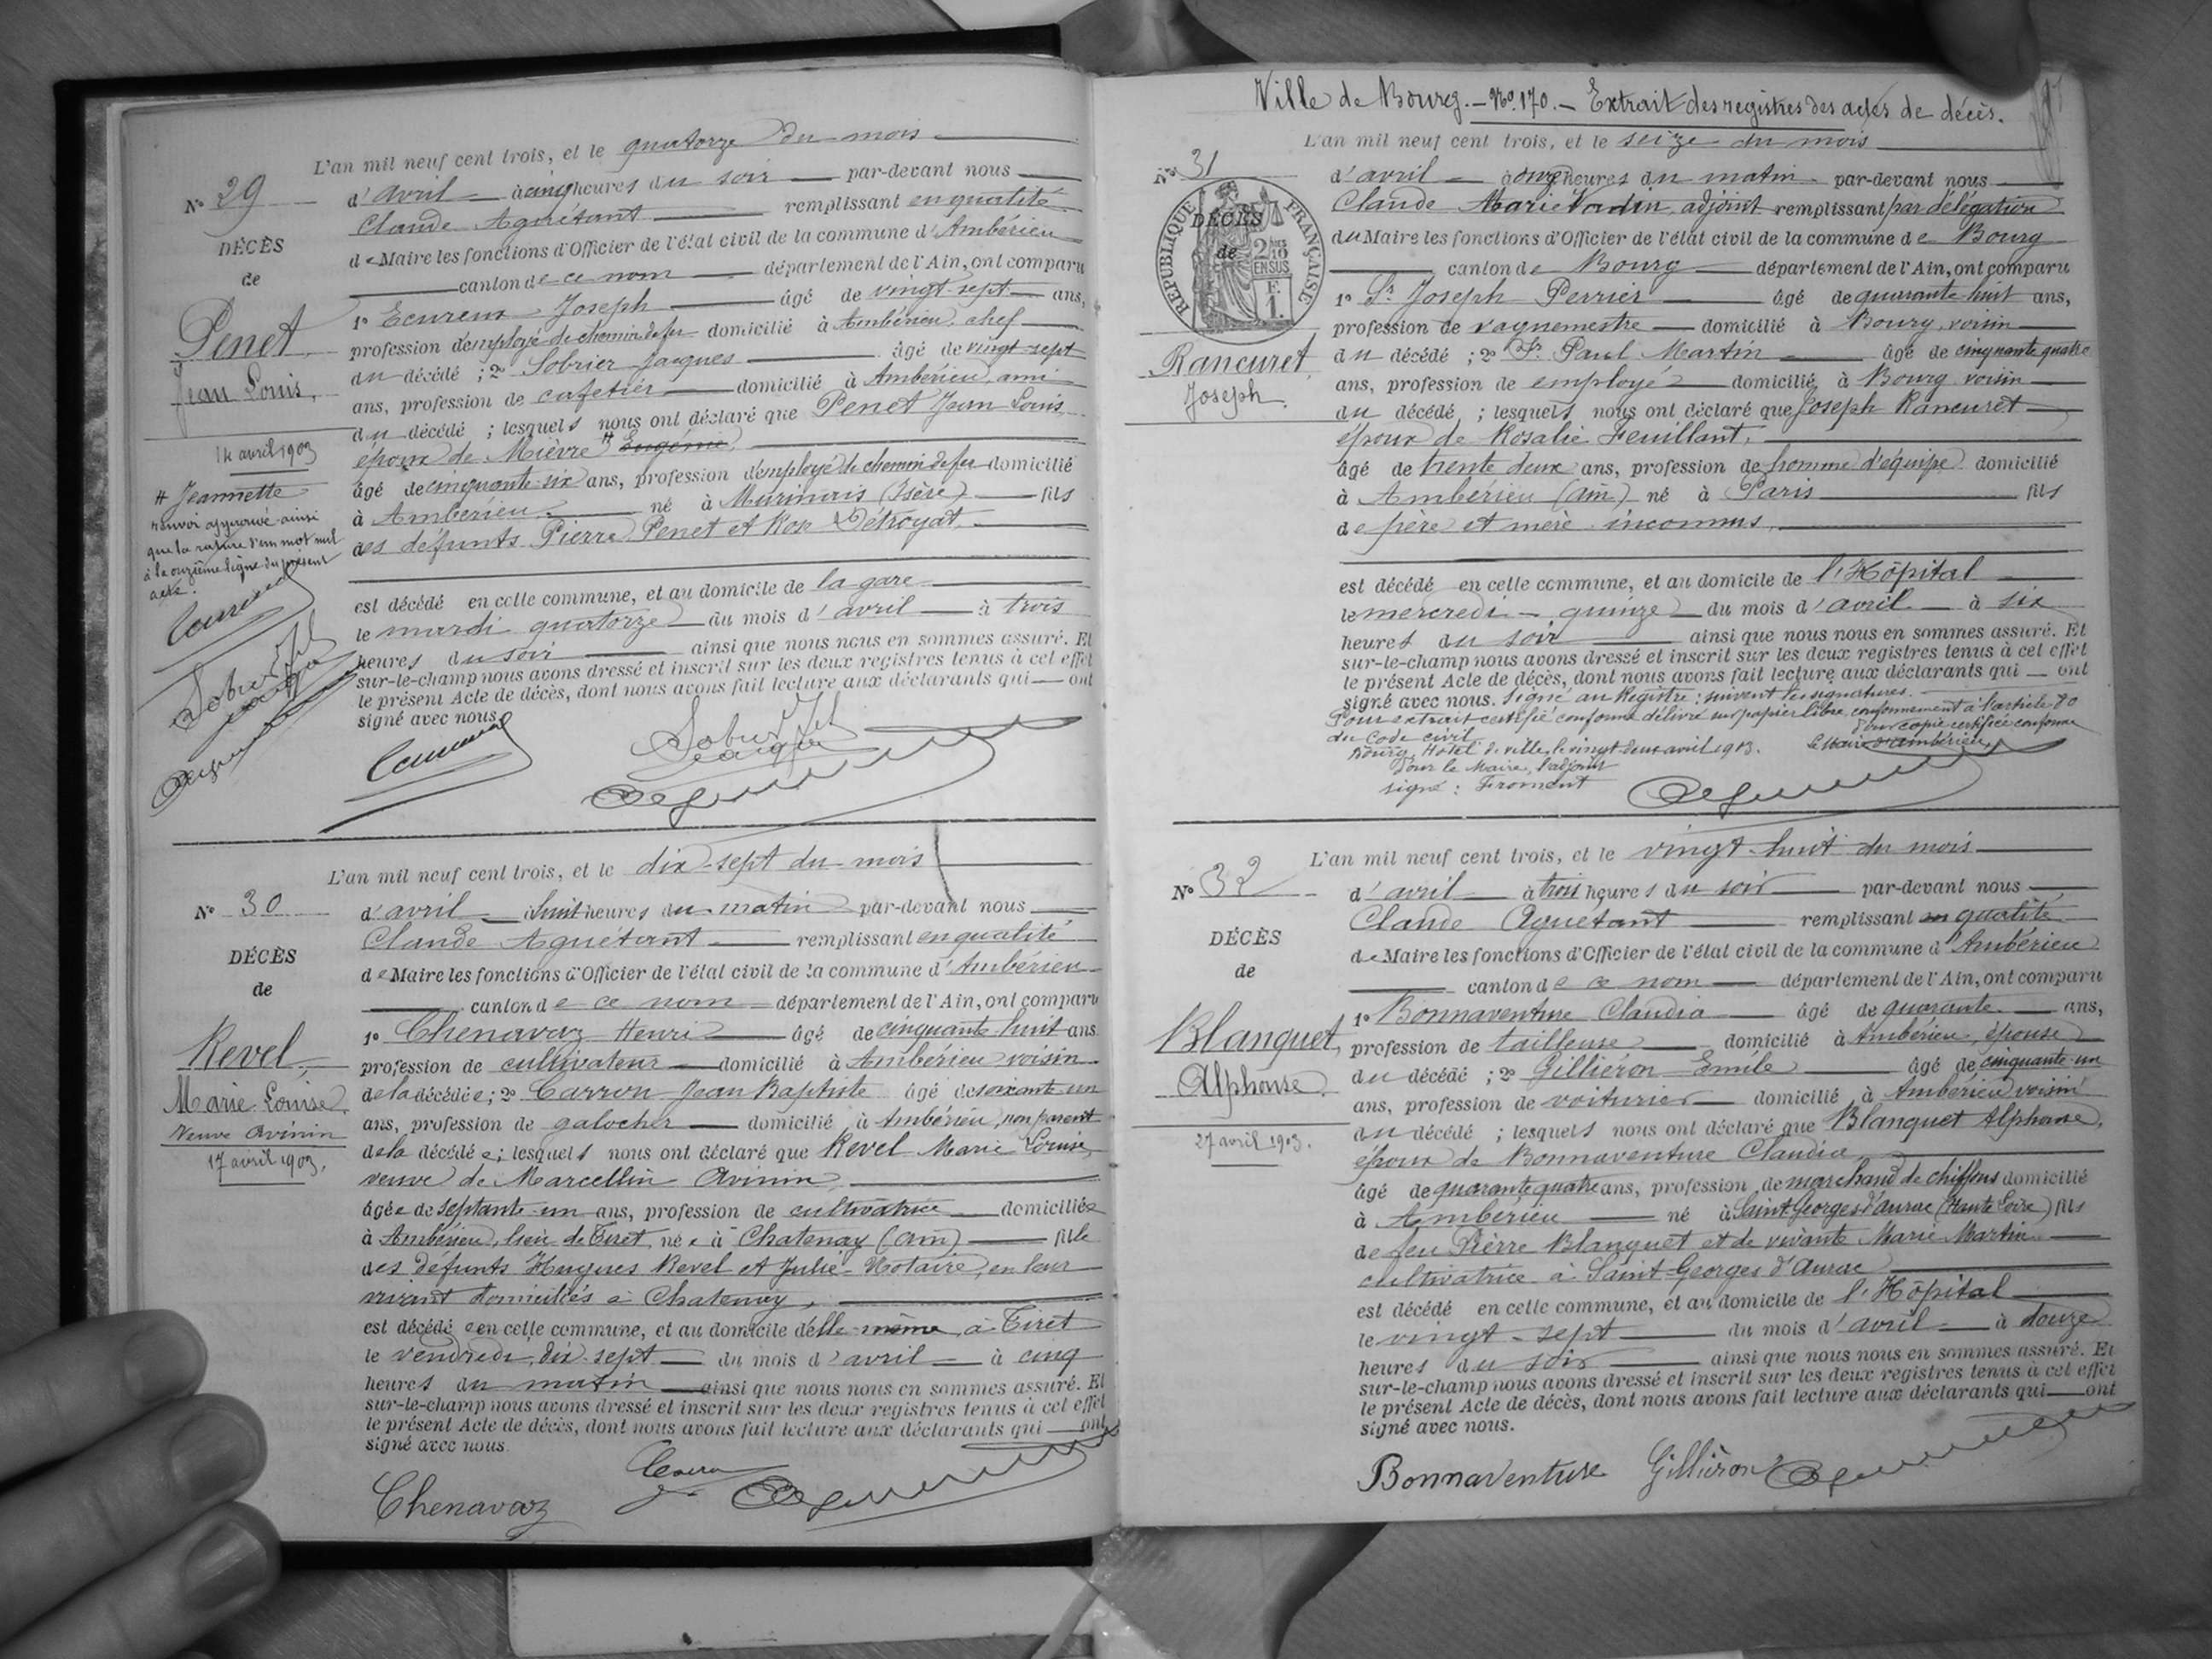 L'an mil neuf cent trois, et le quatorze du mois
N° 29
d'avril à cinq heures du soir par-devant nous
Claude Aguétant remplissant en qualité
DÉCÈS
de Maire les fonctions d'Officier de l'état civil de la commune d'Ambérieu
de
canton de ce nom département de l'Ain, ont comparu
1° Ecureux Joseph âgé de vingt-sept ans,
Penet
profession d'employé de chemin de fer domicilié à Ambérieu, chef
Jean Louis.
du décédé ; 2° Sobrier Jacques âgé de vingt-sept
ans, profession de cafetier domicilié à Ambérieu, ami
du décédé ; lesquels nous ont déclaré que Penet Jean Louis
14 avril 1903
époux de Mièvre # Eugénie,
# Jeannette
âgé de cinquante-six ans, profession d'employé de chemin de fer domicilié
renvoi approuvé ainsi
à Ambérieu né à Murinais (Isère) fils
que la rature d'un mot nul
des défunts Pierre Penet et Rose Détroyat.
à la onzième ligne du présent
acte.
est décédé en cette commune, et au domicile de la gare
le mardi quatorze du mois d'avril à trois
heures du soir ainsi que nous nous en sommes assuré. Et
sur-le-champ nous avons dressé et inscrit sur les deux registres tenus à cet effet
le présent Acte de décès, dont nous avons fait lecture aux déclarants qui ont
signé avec nous
L'an mil neuf cent trois, et le dix-sept du mois
N° 30
d'avril à huit heures du matin par-devant nous
Claude Aguétant remplissant en qualité
DÉCÈS
de Maire les fonctions d'Officier de l'état civil de la commune d'Ambérieu
de
canton de ce nom département de l'Ain, ont comparu
1° Chenavaz Henri âgé de cinquante huit ans
Revel,
profession de cultivateur domicilié à Ambérieu voisin
Marie Louise
de la décédée ; 2° Carron Jean Baptiste âgé de soixante-un
Veuve Avinin
ans, profession de galocher domicilié à Ambérieu, non parent
17 avril 1903.
de la décédée ; lesquels nous ont déclaré que Revel Marie Louise,
veuve de Marcellin Avinin,
âgée de septante-un ans, profession de cultivatrice domiciliée
à Ambérieu, lieu de Tiret, née à Chatenay (Ain) fille
des défunts Hugues Revel et Julie Notaire, en leur
vivant domiciliés à Chatenay,
est décédée en cette commune, et au domicile d'elle-même, à Tiret
le vendredi, dix-sept du mois d'avril à cinq
heures du matin ainsi que nous nous en sommes assuré. Et
sur-le-champ nous avons dressé et inscrit sur les deux registres tenus à cet effet
le présent Acte de décès, dont nous avons fait lecture aux déclarants qui ont
signé avec nous
Chenavaz
Ville de Bourg. - No. 170. - Extrait des registres des actes de décès.
L'an mil neuf cent trois, et le seize du mois
N° 31
d'avril à onze heures du matin par-devant nous
Claude Marie Vardin, adjoint remplissant par délégation
RÉPUBLIQUE FRANÇAISE
DÉCÈS
de
2/10 EN SUS
F. 1.
du Maire les fonctions d'Officier de l'état civil de la commune de Bourg
canton de Bourg département de l'Ain, ont comparu
1° Sr. Joseph Perrier âgé de quarante huit ans,
profession de vaguemestre domicilié à Bourg, voisin
Rancuret
du décédé ; 2° Sr. Paul Martin âgé de cinquante quatre
Joseph.
ans, profession de employé domicilié à Bourg voisin
du décédé ; lesquels nous ont déclaré que Joseph Rancuret
époux de Rosalie Feuillant,
âgé de trente deux ans, profession de homme d'équipe domicilié
à Ambérieu (Ain) né à Paris fils
de père et mère inconnus,
est décédé en cette commune, et au domicile de l'Hôpital
le mercredi quinze du mois d'avril à six
heures du soir ainsi que nous nous en sommes assuré. Et
sur-le-champ nous avons dressé et inscrit sur les deux registres tenus à cet effet
le présent Acte de décès, dont nous avons fait lecture aux déclarants qui ont
signé avec nous. Signé au Registre : suivent les signatures.
Pour extrait certifié conforme délivré sur papier libre conformément à l'article 80
du Code civil
Pour copie certifiée conforme
Bourg, Hôtel de ville, le vingt deux avril 1903.
Le Maire d'Ambérieu,
Pour le Maire, l'adjoint
signé : Firoment
L'an mil neuf cent trois, et le vingt-huit du mois
N° 32
d'avril à trois heures du soir par-devant nous
Claude Aguétant remplissant en qualité
DÉCÈS
de Maire les fonctions d'Officier de l'état civil de la commune d'Ambérieu
de
canton de ce nom département de l'Ain, ont comparu
1° Bonnaventure Claudia âgé de quarante ans,
Blanquet,
profession de tailleuse domicilié à Ambérieu, épouse
Alphonse.
du décédé ; 2° Gilliéron Emile âgé de cinquante-un
ans, profession de voiturier domicilié à Ambérieu voisin
27 avril 1903.
du décédé ; lesquels nous ont déclaré que Blanquet Alphonse,
époux de Bonnaventure Claudia,
âgé de quarante quatre ans, profession de marchand de chiffons domicilié
à Ambérieu né à Saint Georges d'Aurac (Haute Loire) fils
de feu Pierre Blanquet et de vivante Marie Martin
cultivatrice à Saint-Georges d'Aurac
est décédé en cette commune, et au domicile de l'Hôpital
le vingt-sept du mois d'avril à douze
heures du soir ainsi que nous nous en sommes assuré. Et
sur-le-champ nous avons dressé et inscrit sur les deux registres tenus à cet effet
le présent Acte de décès, dont nous avons fait lecture aux déclarants qui ont
signé avec nous.
Bonnaventure Gilliéron